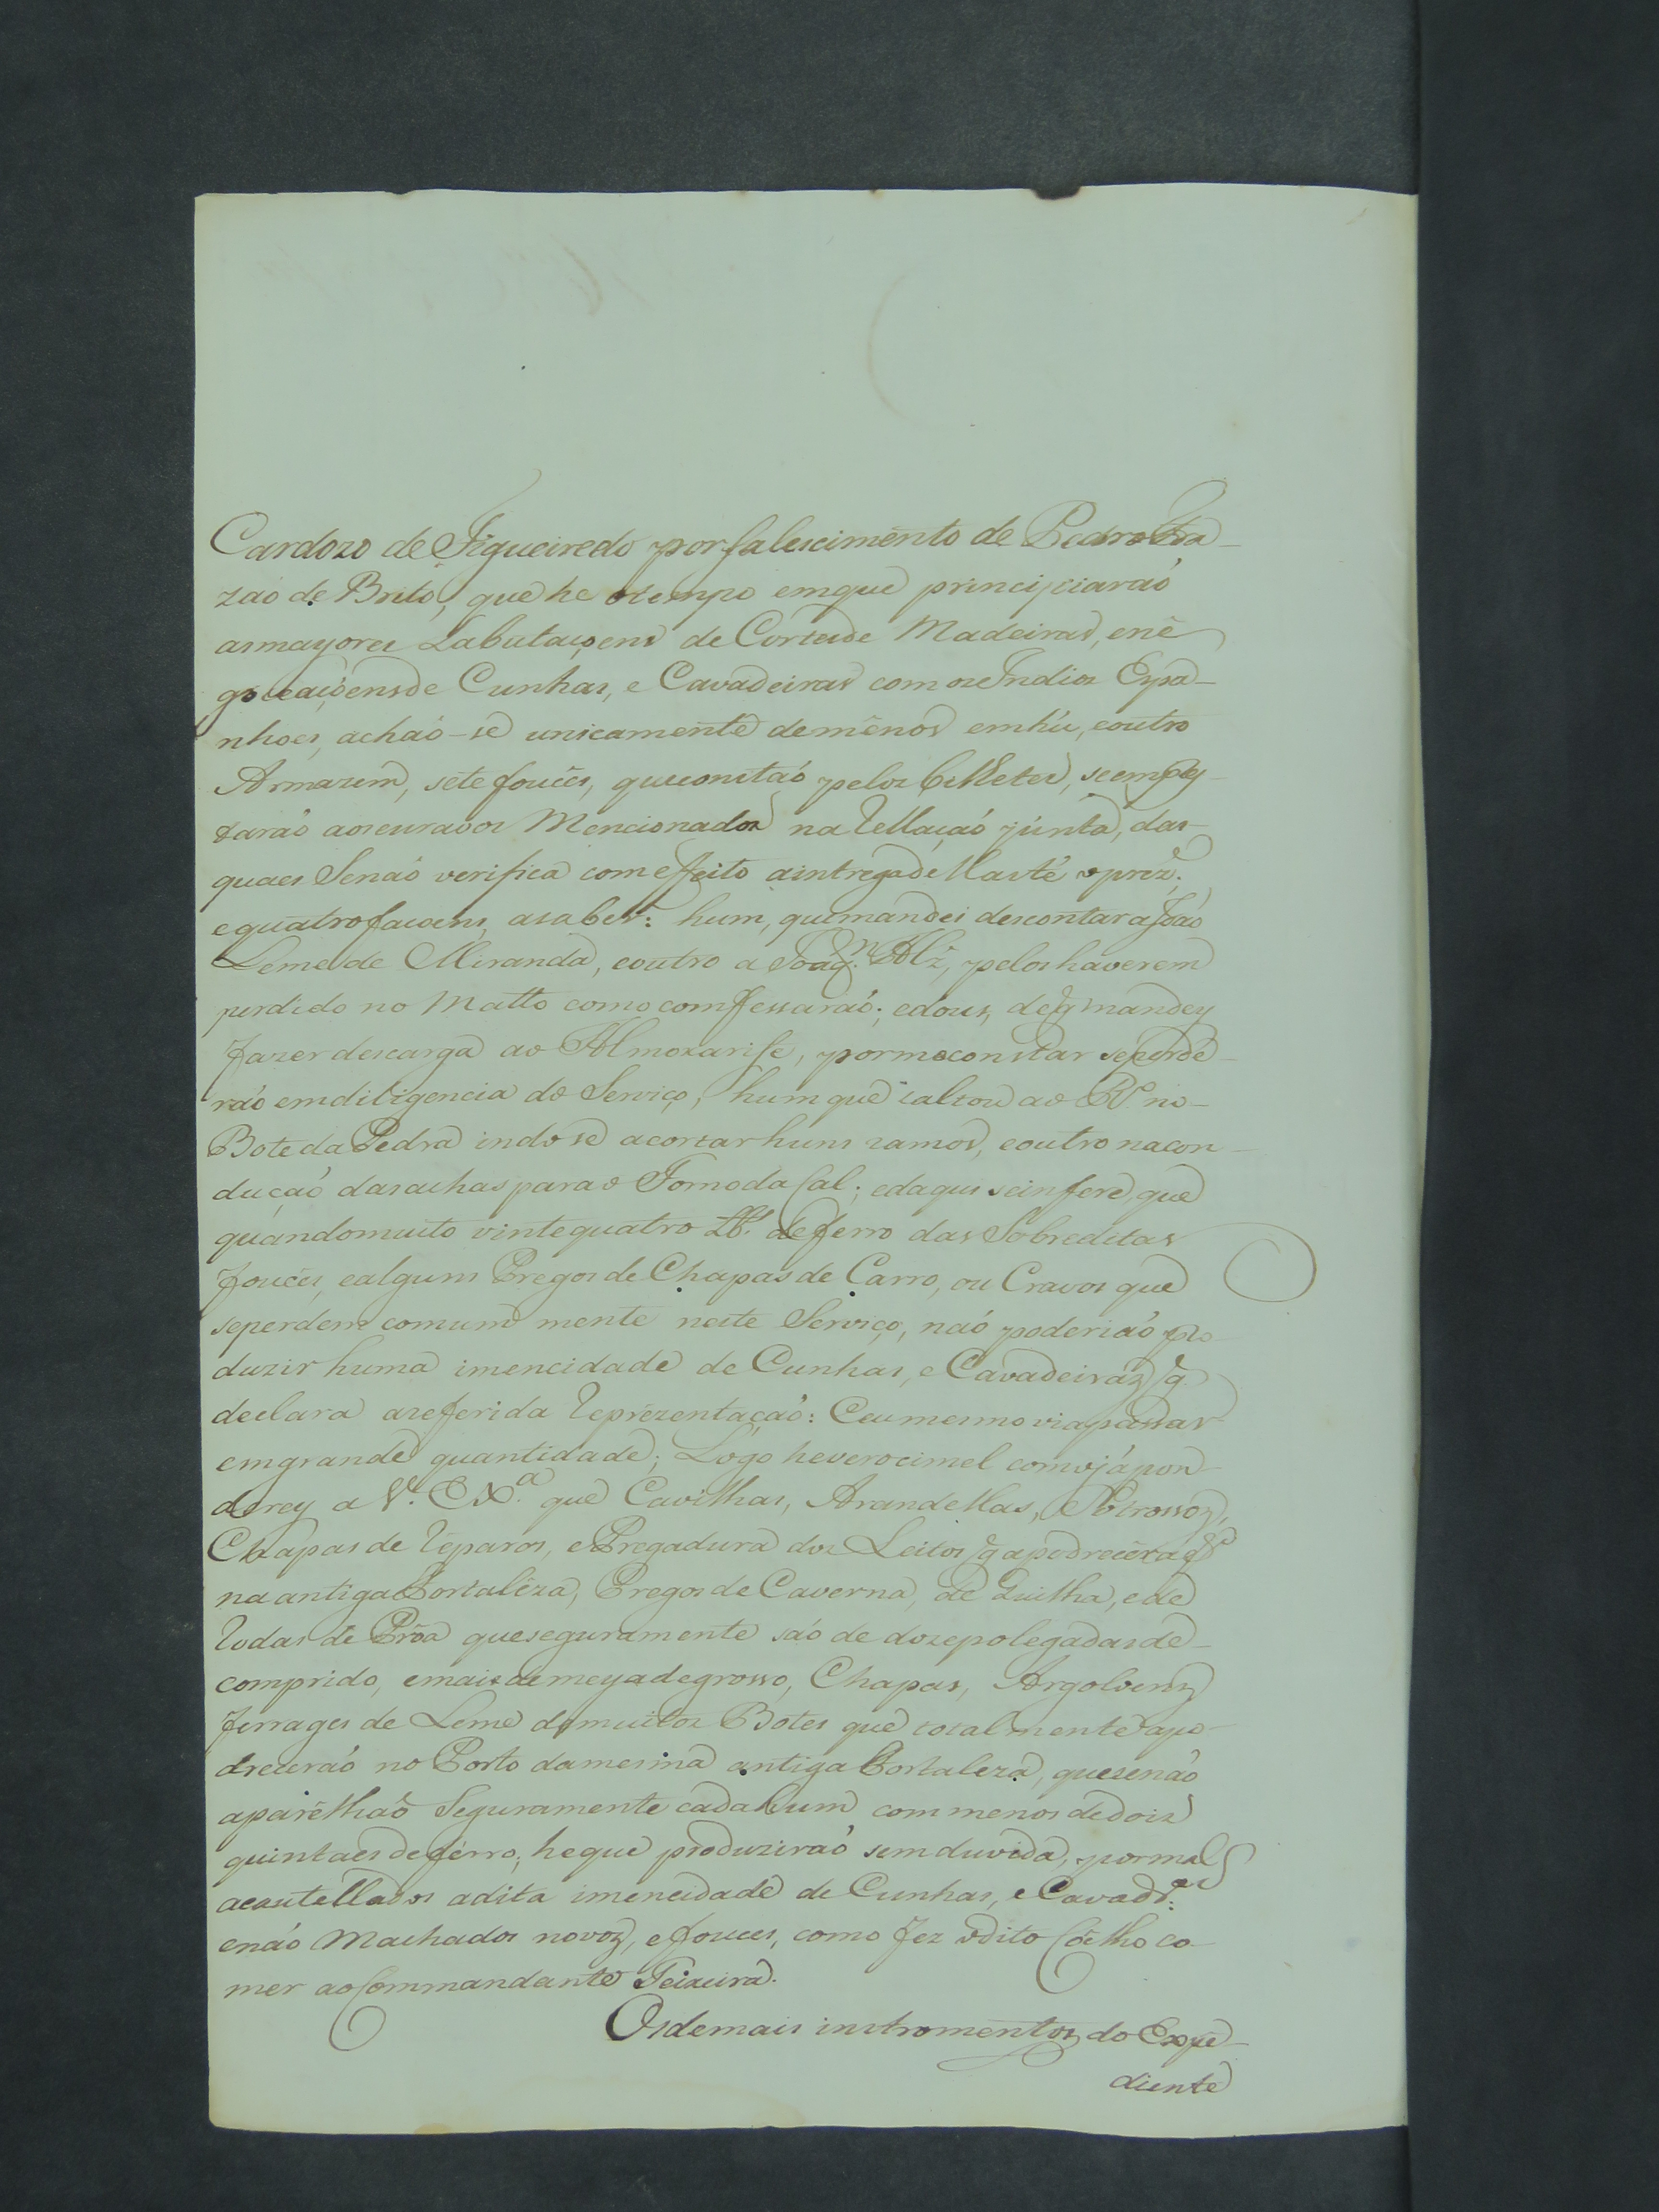 Cardozo de Figueiredo por falescimento de Pedro Fra-
zaó de Brito, que he otempo emque principiaraó
asmayores Labutaçoens de Cortesde Madeiras, enê
goceaçoensde Cunhas, e Cavadeiras com osIndios Espa-
nhoes, achaó-se unicamente demênos emhũ, eoutro
Armazem, sête fouces, queconstaó pelos bilhetes, seempres
taraó aoscurados Mencionados na Rellaçaó junta, das-
quaes Senaó verifica comeffeito aintregadellasté oprez.e
equatrofacoens, asaber: hum, quemandei descontar aJoaó
Leme de Miranda, eoutro a Joaq.m Alz, peloshaverem
perdido no Matto como comfessaraó; edous, deq mandey
fazer descarga ao Almoxarife, pormeconstar seperdê-
raó emdiligencia do Serviço, hum que saltou ao Rº no-
Bote da Pedra indose acortar huns ramos, eoutro nacon-
duçaó dasachas parao Forno da Cal; edaqui seinfere, que
quandomuito vintequatro lb.s de ferro das Sobreditas
fouces, ealguns Pregos de Chapas de Carro, ou Cravos que
seperdem comum mente neste Serviço, naó poderiaó pro
duzir huma imencidade de Cunhas, e Cavadeiras q
declara areferida Reprezentaçaó: Eeumesmo viapassar
emgrande quantidade; Logo heverocimel comojápon-
derey a V. EXª. que Cavilhas, Arandellas,
Chapas de Reparos, e Pregadura dos Leitos q apodreceraó
na antiga Fortalêza, Pregos de Caverna, de Quilha, ede
Rodas de Prôa queseguramente saó de dozepolegadasde-
comprido, emaisdemeyadegrosso, Chapas, Argoloens,
ferrages de Leme demuitos Botes que totalmente apo-
dreceraó no Porto damesma antiga Fortaleza, quesenaó
aparêlhaõ Seguramente cadahum com menos dedois
quintaes deférro; heque produziraó sem duvida, por mal
acasutellados adita imencidade de Cunhas, e Cavadr.as
enaó Machados novos, efouces, como fez odito Coêlho co-
mer aoCommandante Teixeira.
Osdemais instromentos do Expe-
diente